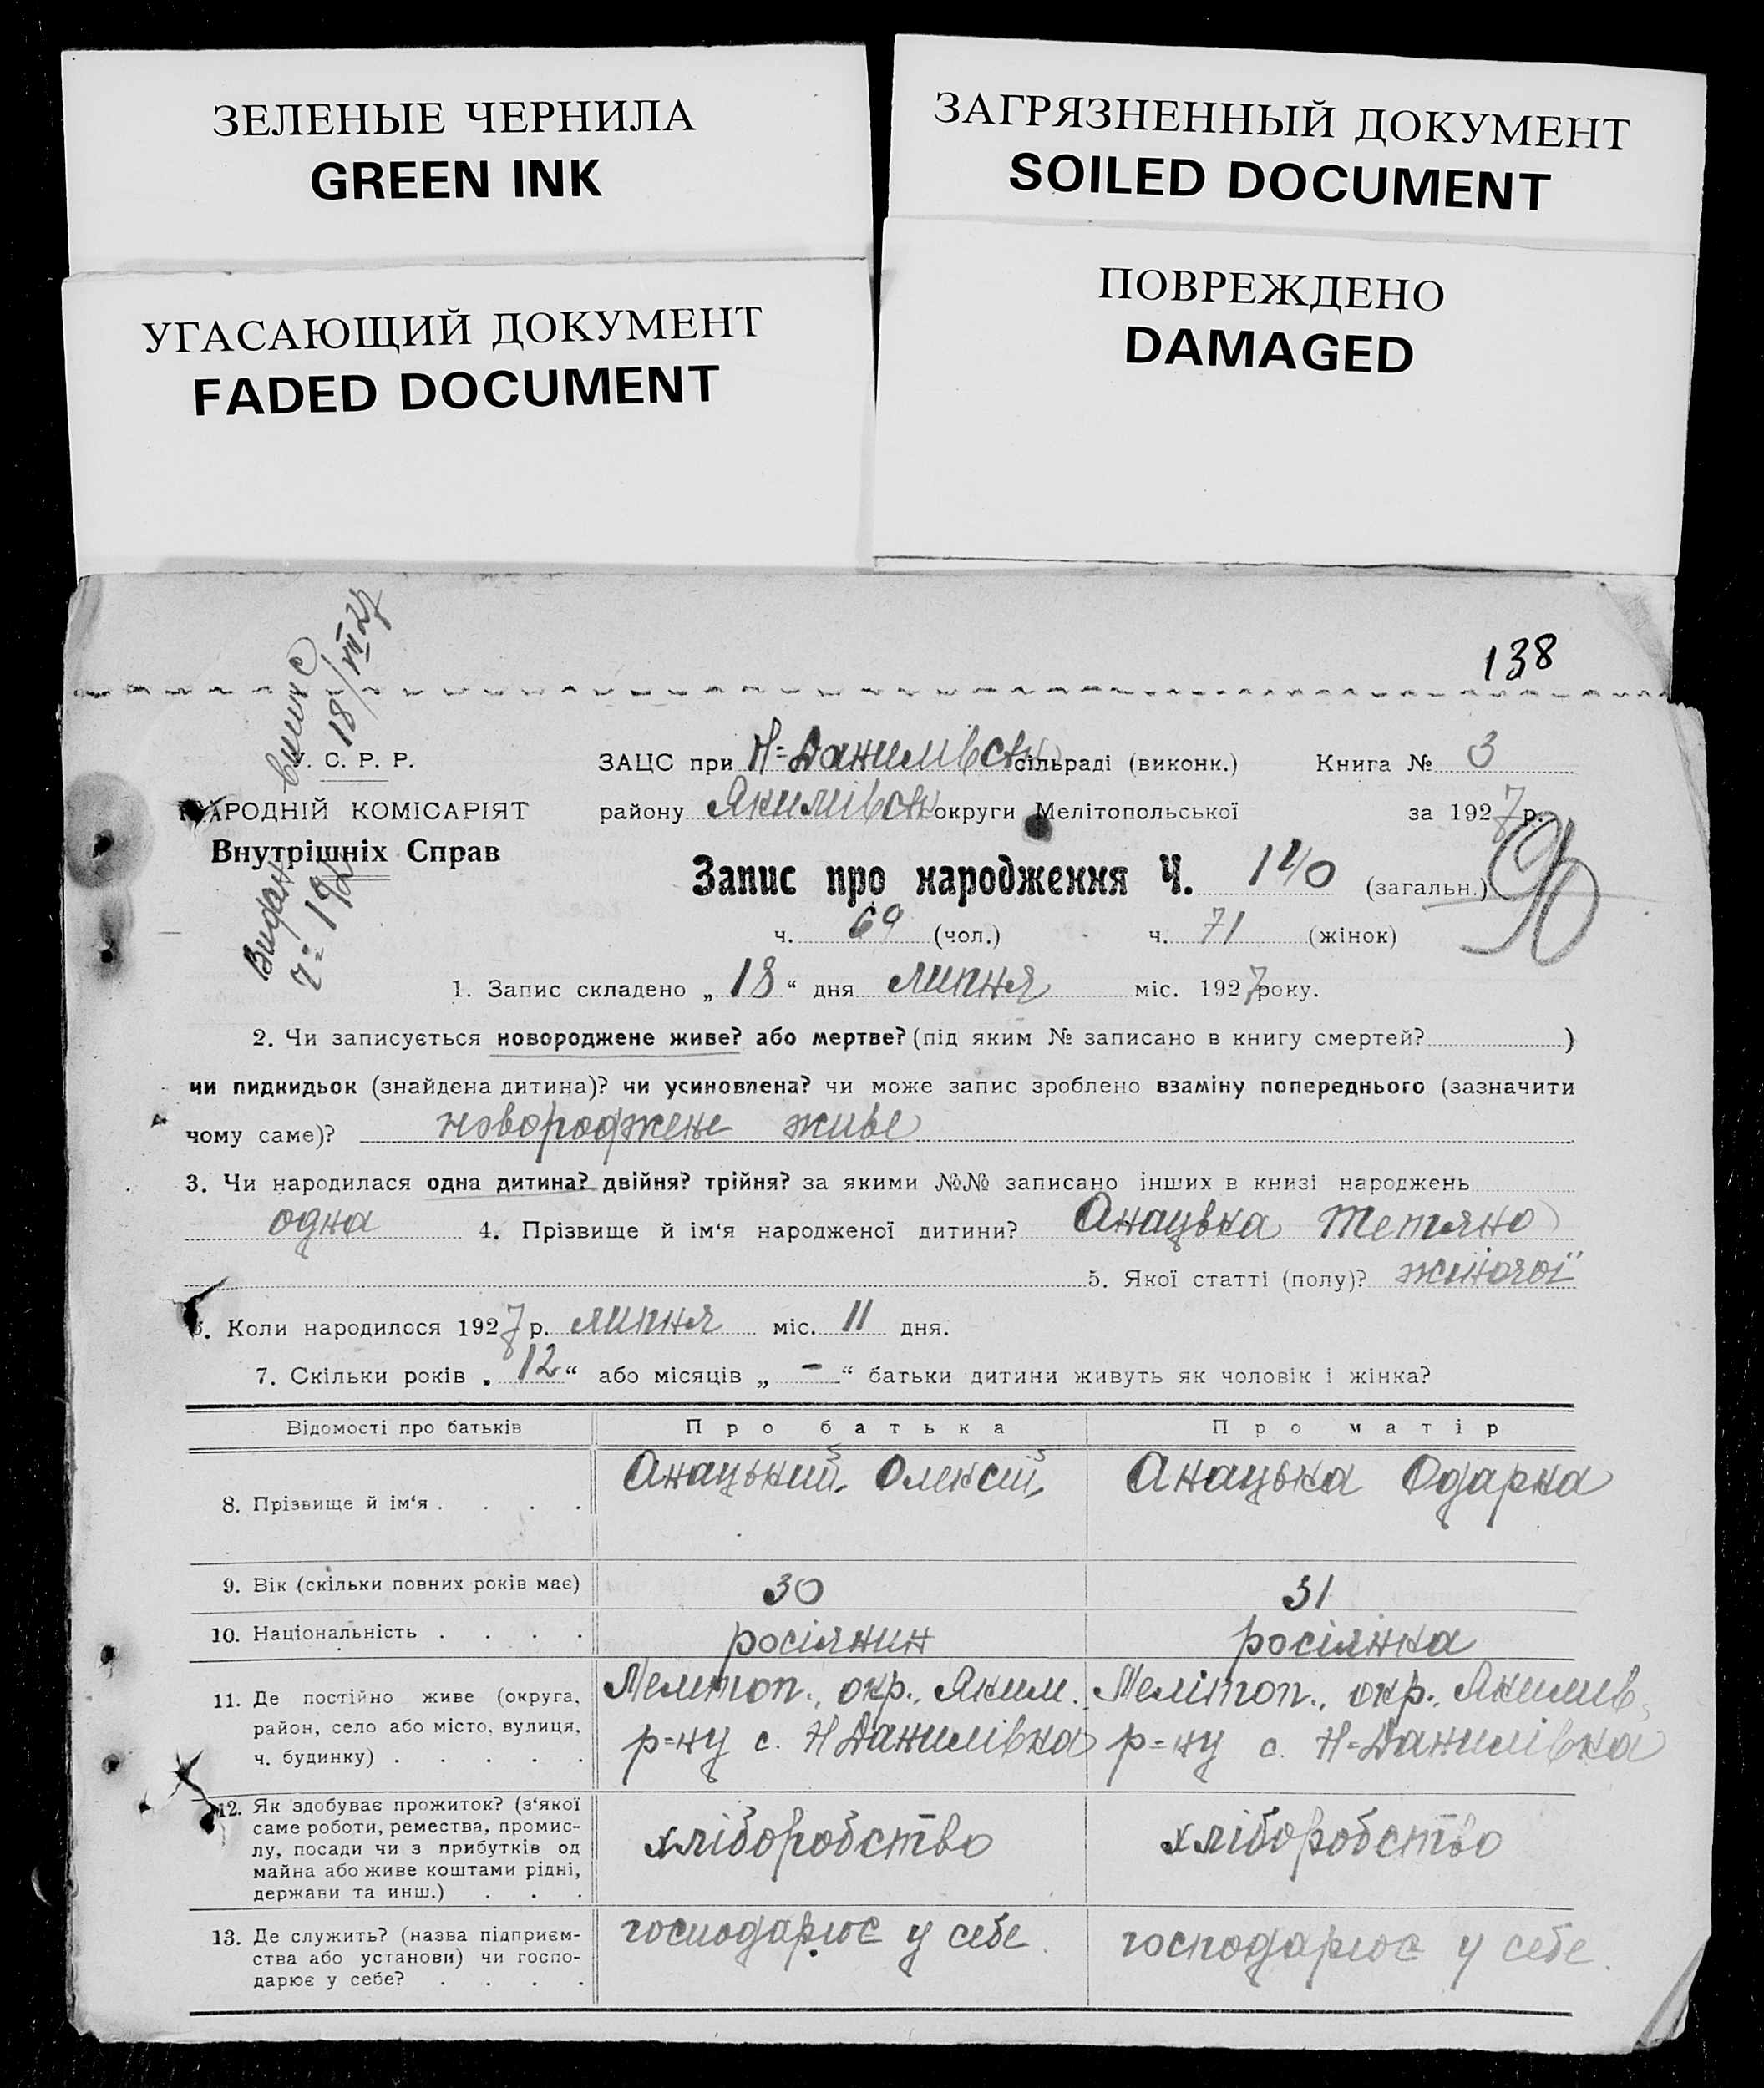 ЗЕЛЕНЫЕ ЧЕРНИЛА
GREEN INK
ЗАГРЯЗНЕННЫЙ ДОКУМЕНТ
SOILED DOCUMENT
УГАСАЮЩИЙ ДОКУМЕНТ
FADED DOCUMENT
ПОВРЕЖДЕНО
DAMAGED
138
Видан випис
18/VII 27
У. С. Р. Р.
НАРОДНІЙ КОМІСАРІЯТ
Внутрішніх Справ
ЗАЦС при Н=Данилівськ сільраді (виконк.) Книга № 3
району Якимівськ округи Мелітопольської за 1927 р.
90
Запис про народження Ч. 140 (загальн.)
ч. 69 (чол.) ч. 71 (жінок)
1. Запис складено „ 18 “ дня липня міс. 1927 року.
2. Чи записується новороджене живе? або мертве? (під яким № записано в книгу смертей? )
чи пидкидьок (знайдена дитина)? чи усиновлена? чи може запис зроблено взаміну попереднього (зазначити
чому саме)? новороджене живе
3. Чи народилася одна дитина? двійня? трійня? за якими №№ записано інших в книзі народжень
одна 4. Прізвище й ім‘я народженої дитини? Анацька Тетяна
5. Якої статті (полу)? жіночої
6. Коли народилося 1927 р. липня міс. 11 дня.
7. Скільки років „ 12 “ або місяців „ – “ батьки дитини живуть як чоловік і жінка?
Відомості про батьків Про батька Про матір
8. Прізвище й ім‘я . . . . Анацький Олексій Анацька Одарка
9. Вік (скільки повних років має) 30 31
10. Національність . . . . росіянин росіянка
11. Де постійно живе (округа, район, село або місто, вулиця, ч. будинку) . . . . .
Мелітоп., окр., Яким.
р=ну с. Н Данилівка
Мелітоп., окр., Якимів,
р=ну с. Н=Данилівка
12. Як здобуває прожиток? (з‘якої
саме роботи, ремества, промис-
лу, посади чи з прибутків од
майна або живе коштами рідні,
держави та инш.) . . .
хліборобство хліборобство
13. Де служить? (назва підприєм-
ства або установи) чи госпо-
дарює у себе? . . . .
господарює у себе господарює у себе.